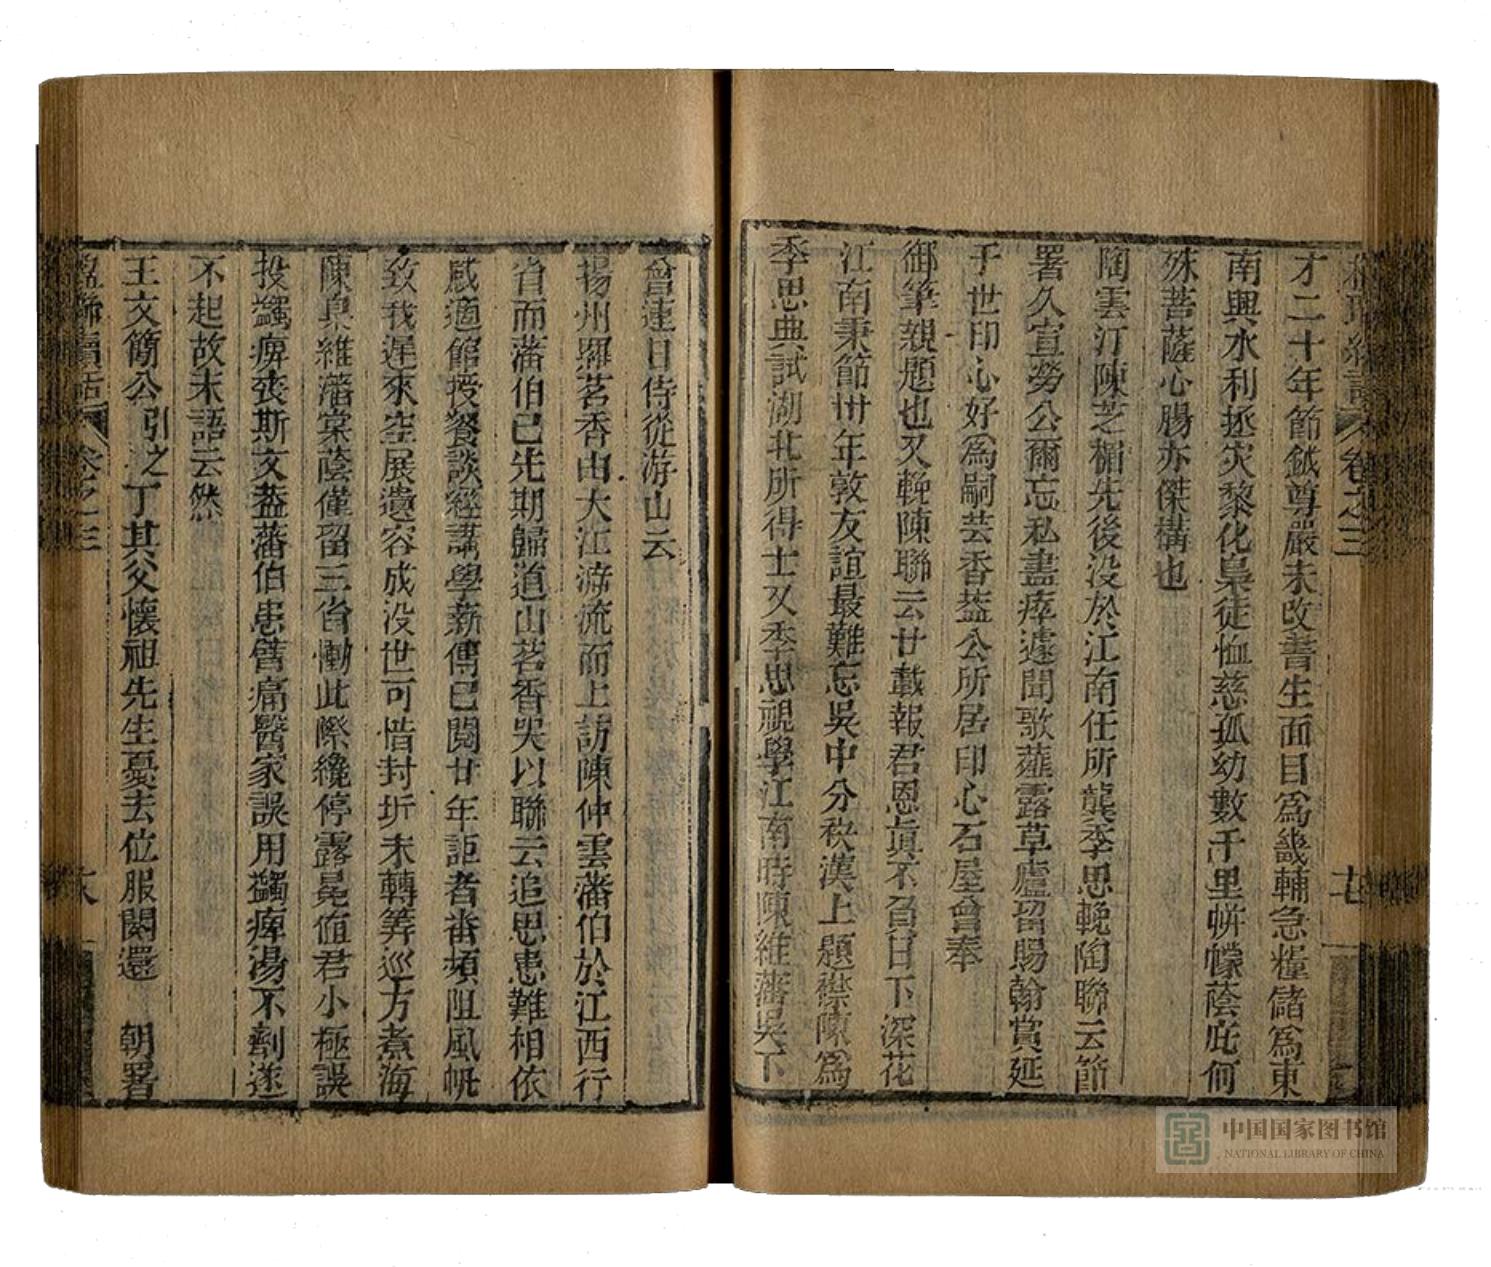 卷之三
才二十年節鉞尊嚴未改書生面目為畿輔急糧儲為東
南興水利拯灾黎化梟徒恤慈孤幼數千里帡幪蔭庇何
殊菩薩心腸亦傑構也
陶雲汀陳芝楣先後没於江南任所龔季思輓陶聯云節
署久宣勞公爾忘私盡瘁遽聞歌薤露草廬留賜翰賞延
于世印心好為嗣芸香葢公所居印心石屋曾奉
御筆親題也又輓陳聯云廿載報君恩眞不負日下深花
江南秉節卅年敦友誼最難忘吳中分袂漢上題襟陳為
季思典試湖北所得士又季思視學江南時陳維藩吳下
曾連日侍從游山云
揚州羅茗香由大江游流而上訪陳仲雲藩伯於江西行
省而藩伯已先期歸道山茗香哭以聯云追思患難相依
感適館授餐談經講學新傳已閱廿年詎者番頻阻風帆
致我遲來空展遺容成没世可惜封圻未轉筭巡方煮海
陳臬維藩棠蔭僅留三省慟此際纔停露冕値君小極誤
投蠲痹喪斯文葢藩伯患臂痛醫家誤用蠲痺湯不劑遂
不起故末語云然
王文簡公引之丁其父懷祖先生憂去位服闋還 朝署
楹聯續話 卷之三
中国国家图书馆
NATIONAL LIBRARY OF CHINA